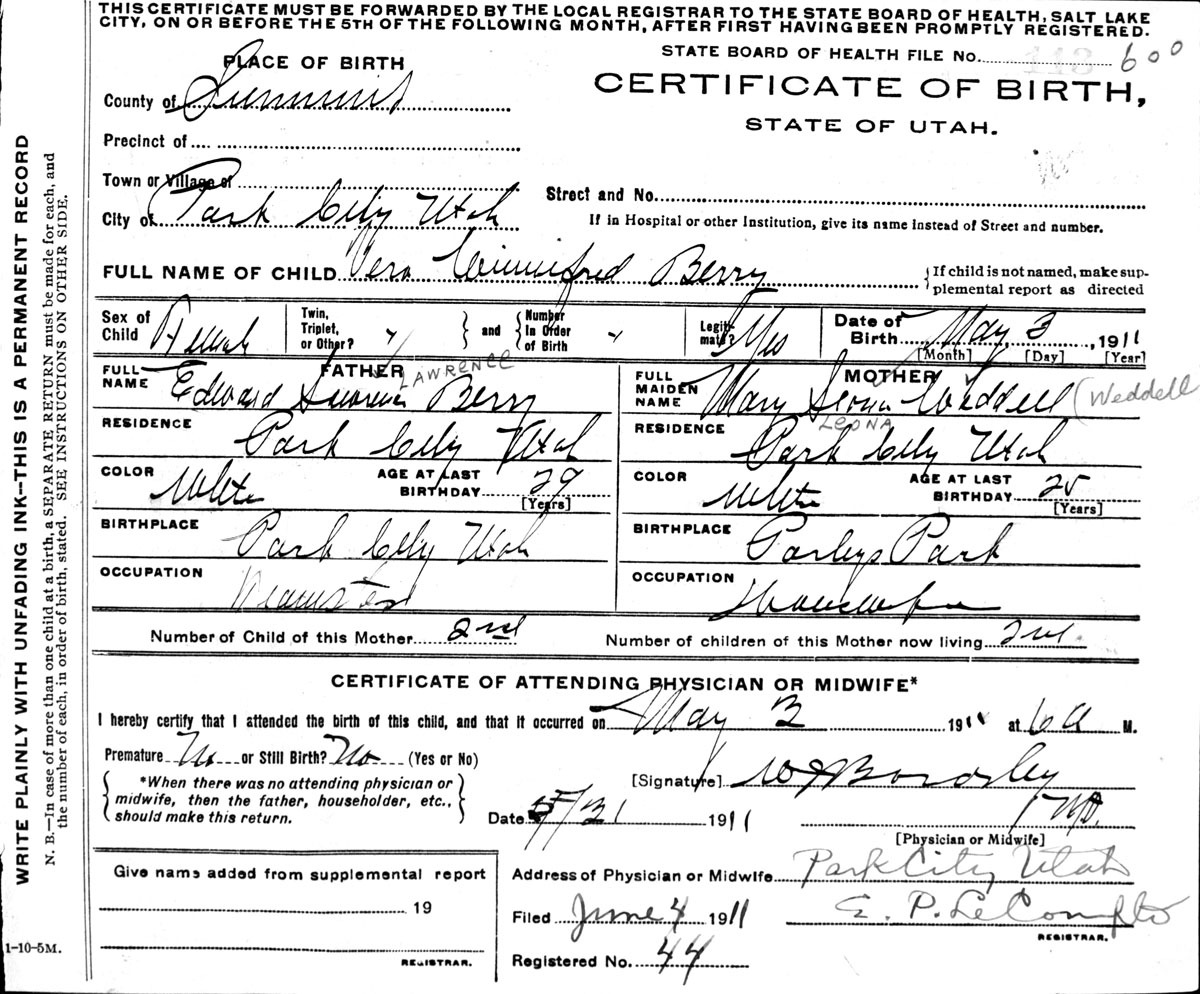 THIS CERTIFICATE MUST BE FORWARDED BY THE LOCAL REGISTRAR TO THE STATE BOARD OF HEALTH, SALT LAKE
CITY, ON OR BEFORE THE 5TH OF THE FOLLOWING MONTH, AFTER FIRST HAVING BEEN PROMPTLY REGISTERED.
STATE BOARD OF HEALTH FILE No. 113 600
PLACE OF BIRTH
CERTIFICATE OF BIRTH,
STATE OF UTAH.
County of Summit
Precinct of
Town or Village of
Street and No.
City of Park City Utah
If in Hospital or other Institution, give its name instead of Street and number.
FULL NAME OF CHILD Vera Winnifred Berry
{If child is not named, make sup-
plemental report as directed
Sex of Child Female
Twin, Triplet, or Other?
and
Number In Order of Birth
Legiti-mate? Yes
Date of Birth May 3, 1911
[Month] [Day] [Year]
FATHER
FULL NAME Edward Lawrence Berry
LAWRENCE
MOTHER
FULL MAIDEN NAME Mary Leona Weddell (Weddell
LEONA
RESIDENCE Park City Utah
RESIDENCE Park City Utah
COLOR White
AGE AT LAST BIRTHDAY 29
[Years]
COLOR White
AGE AT LAST BIRTHDAY 25
[Years]
BIRTHPLACE Park City Utah
BIRTHPLACE Parleys Park
OCCUPATION Teamster
OCCUPATION Housewife
Number of Child of this Mother 2nd
Number of children of this Mother now living 2nd
CERTIFICATE OF ATTENDING PHYSICIAN OR MIDWIFE*
I hereby certify that I attended the birth of this child, and that it occurred on May 3 1911 at 6 a M.
Premature No or Still Birth? No (Yes or No)
{*When there was no attending physician or
midwife, then the father, householder, etc.,
should make this return.}
[Signature] W J Bardsley
M.D.
Date 5/31 1911
[Physician or Midwife]
Give name added from supplemental report
19
REGISTRAR.
Address of Physician or Midwife Park City Utah
Filed June 4 1911
E. P. LeCompte
REGISTRAR.
Registered No. 44
WRITE PLAINLY WITH UNFADING INK—THIS IS A PERMANENT RECORD
N. B.—In case of more than one child at a birth, a SEPARATE RETURN must be made for each, and
the number of each, in order of birth, stated. SEE INSTRUCTIONS ON OTHER SIDE.
1-10-5M.